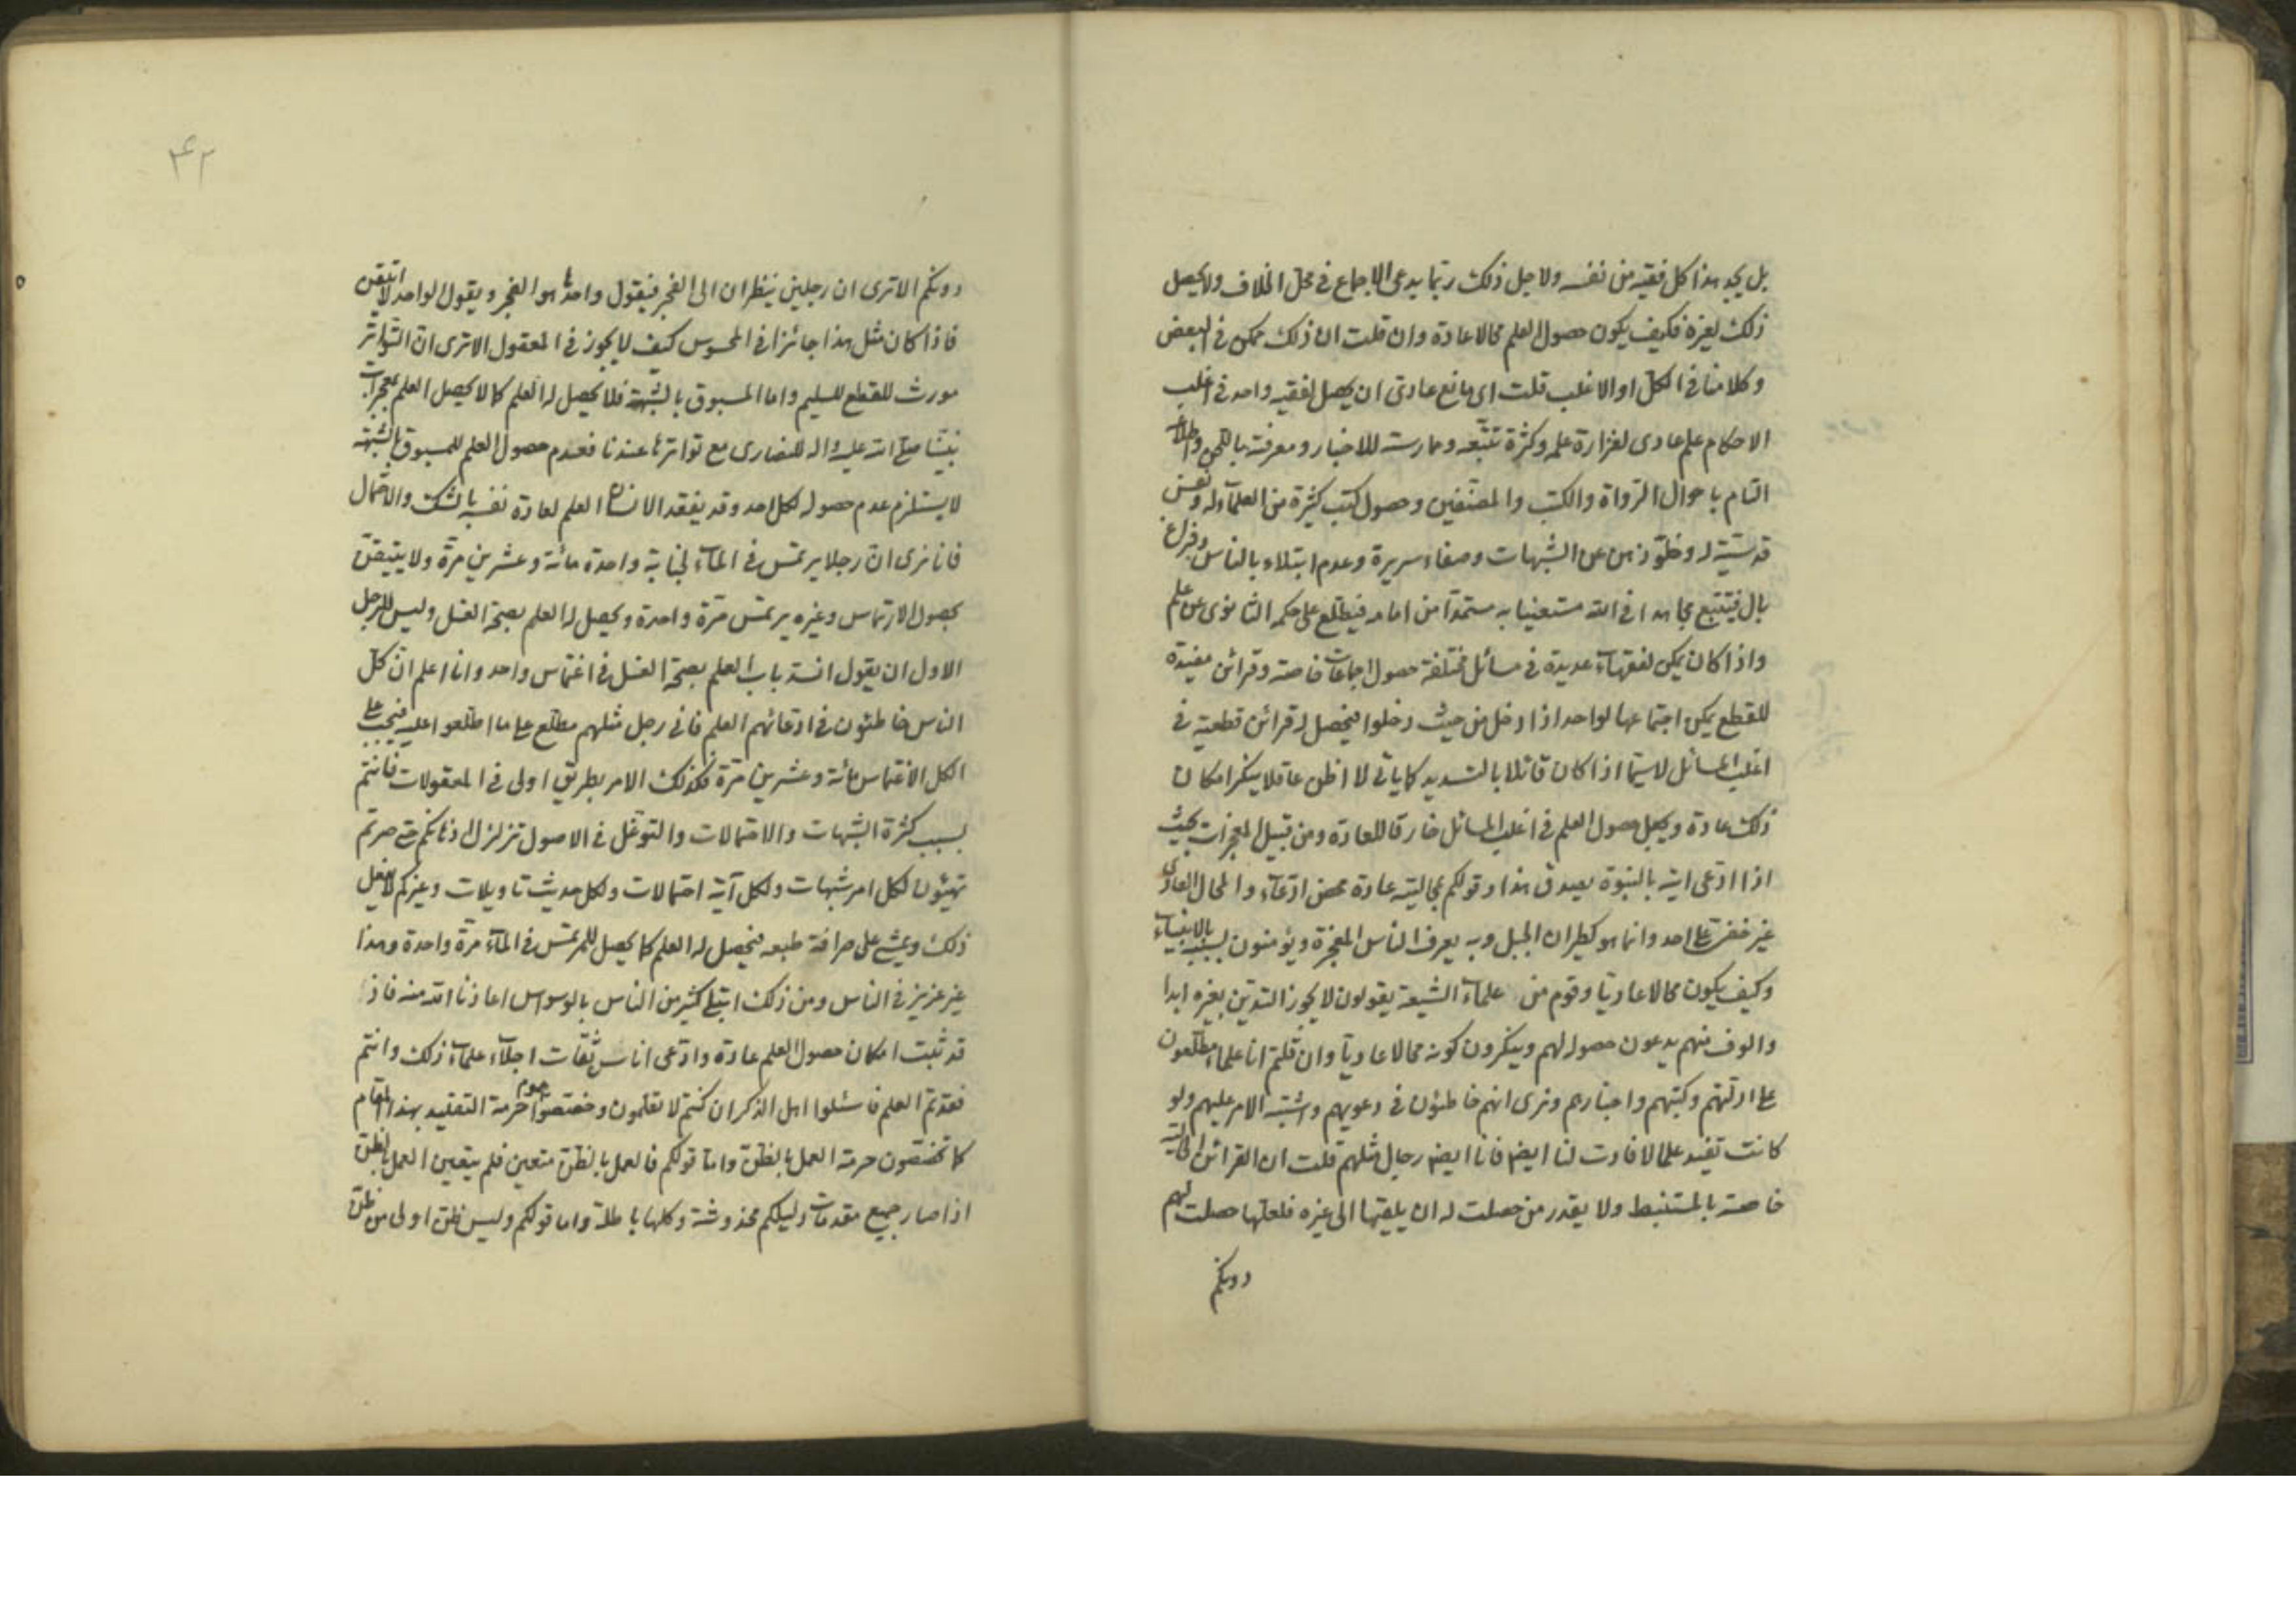 بل يجد هذا كل فقيه من نفسه ولاجل ذلك ربّما يدعى الاجماع في محلّ الخلاف ولا يحصل
ذلك لغيره فكيف يكون حصول العلم محالا عادة وان قلت ان ذلك ممكن في البعض
وكلامنا في الكلّ او الاغلب قلت اى مانع عادىّ ان يحصل لفقيه واحد في اغلب
الاحكام علم عادى لغزارة علمه وكثرة تتبّعه وممارسته للاخبار ومعرفته باللحن واطلاعه
التام باحوال الرّواة والكتب والمصنّفين وحصول كتب كثيرة من العلماء له ونفس
قدسيّة له وخلوّ ذهن عن الشبهات وصفاء سريرة وعدم ابتلاء بالناس وفراغ
بال فيتتبع مجاهدا في الله مستعينا به مستمدّا من امامه فيطّلع على حكمه الثانوى عن علم
واذا كان يمكن لفقهاء عديدة في مسائل مختلفة حصول اجماعات خاصة وقرائن مفيدة
للقطع يمكن اجتماعها لواحد اذا دخل من حيث دخلوا فيحصل له قرائن قطعية في
اغلب المسائل لاسيّما اذا كان قائلا بالتسديد كما ياتى لا اظن عاقلا ينكر امكان
ذلك عادة ويجعل حصول العلم في اغلب المسائل خارقا للعادة ومن قبيل المعجزات بحيث
اذا ادّعى ايته بالنبوة يصدق هذا وقولكم بمحاليته عادة محض ادّعاء والمحال العادى
غير خفىّ على احد وانما هو كطيران الجبل وبه يعرف الناس المعجزة ويؤمنون بسببه بالانبياء
وكيف يكون محالا عاديّا وقوم من علماء الشيعة يقولون لا يجوز التديّن بغيره ابدا
والوف منهم يدعون حصوله لهم وينكرون كونه محالا عاديّا وان قلتم انا علماء مطّلعون
على ادلّتهم وكتبهم واخبارهم ونرى انهم خاطئون في دعويهم واشتبه الامر عليهم ولو
كانت تفيد علما لافادت لنا ايضا فانا ايضا رجال مثلهم قلت ان القرائن الحالية
خاصة بالمستنبط ولا يقدر من حصلت له ان يلقيها الى غيره فلعلها حصلت لهم
دونكم
۴۲
دونكم الا ترى ان رجلين ينظران الى الفجر فيقول واحدهما هو الفجر ويقول الواحد لا اتيقن
فاذا كان مثل هذا جائزا في المحسوس كيف لا يجوز في المعقول الا ترى ان التواتر
مورث للقطع للسليم واما المسبوق بالشبهة فلا يحصل له العلم كما لا يحصل العلم بمعجزات
نبيّنا صلّى الله عليه واله للنصارى مع تواترها عندنا فعدم حصول العلم للمسبوق بالشبهة
لا يستلزم عدم حصوله لكل احد وقد يفقد الانسان العلم لعادة نفسه بالشك والاحتمال
فانا نرى انّ رجلا يرتمس في الماء لجنابة واحدة مائة وعشرين مرّة ولا يتيقّن
بحصول الارتماس وغيره يرتمس مرّة واحدة ويحصل له العلم بصحة الغسل وليس للرجل
الاول ان يقول انسد باب العلم بصحّة الغسل في اغتماس واحد وانا اعلم انّ كلّ
الناس خاطئون في ادّعائهم العلم فانى رجل مثلهم مطّلع على ما اطّلعوا عليه فيجب على
الكل الاغتماس مائة وعشرين مرّة فكذلك الامر بطريق اولى في المعقولات فانتم
بسبب كثرة الشبهات والاحتمالات والتوغّل في الاصول تزلزل اذهانكم حتى صرتم
تهيئون لكل امر شبهات ولكل آية احتمالات ولكل حديث تاويلات وغيركم لا يفعل
ذلك ويمشى على صرافة طبعه فيحصل له العلم كما يحصل للمرتمس في الماء مرّة واحدة وهذا
غير عزيز في الناس ومن ذلك ابتلى كثير من الناس بالوسواس اعاذنا الله منه فاذا
قد ثبت امكان حصول العلم عادة وادّعى اناس ثقات اجلّاء علماء ذلك وانتم
فقدتم العلم فاسئلوا اهل الذكر ان كنتم لا تعلمون وخصّصوا عموم حرمة التقليد بهذا المقام
كما تخصّصون حرمة العمل بالظنّ وامّا قولكم فالعمل بالظنّ متعين فلم يتعين العمل بالظنّ
اذا صار جميع مقدمات دليلكم مخدوشة وكلها باطلة واما قولكم وليس ظنّ اولى من ظنّ